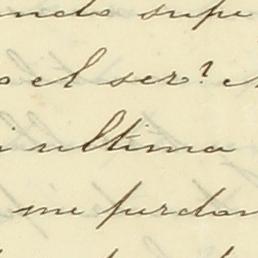 ando supe
o el ser?
i ultima
me perdon